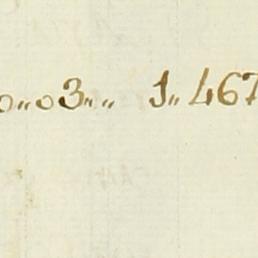 0„03„„ 1„467